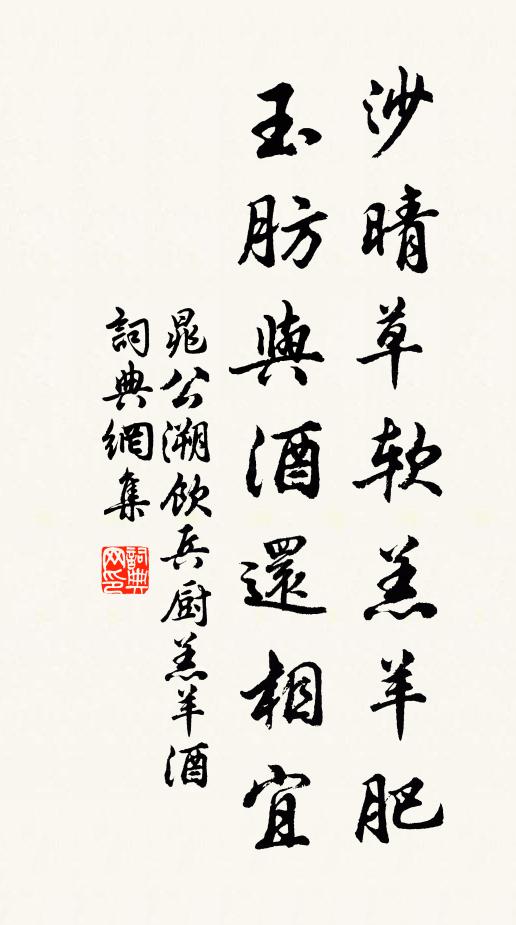 沙晴草软羔羊肥
玉肪與酒還相宜
晁公溯飲兵厨羔羊酒
詞典網集
詞典网印